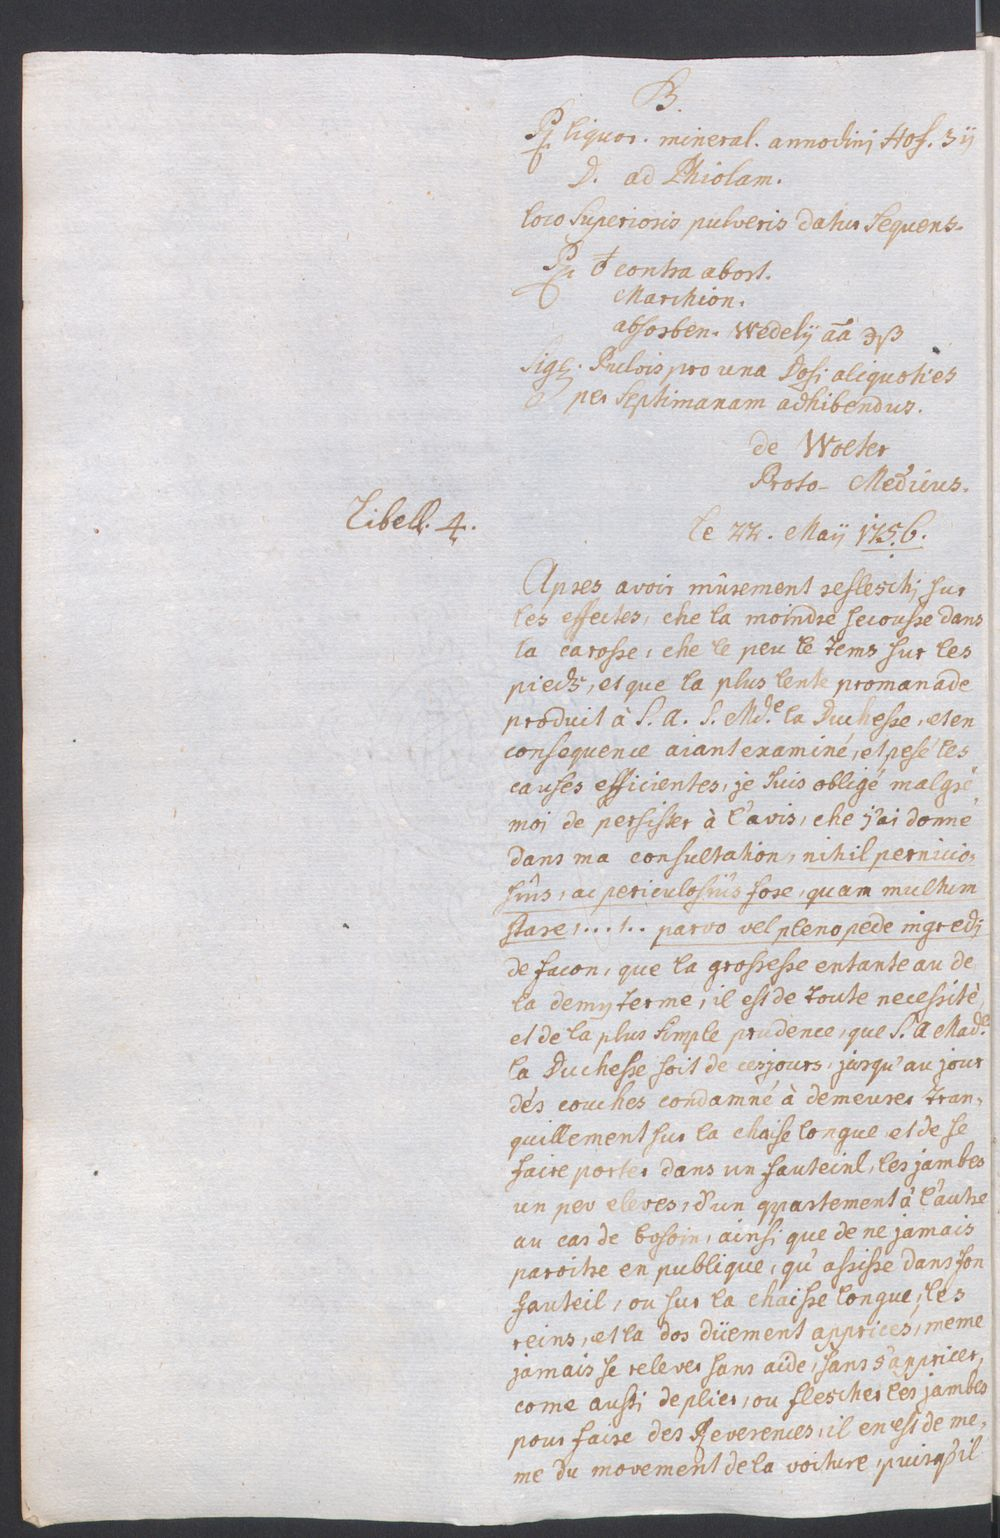 B.
Rx liquor. mineral. annodinj Hof. ʒ ij
D. ad Phiolam.
loco Superioris pulveris datur Sequens.
Rx ♁ contra abort.
Marchion.
absorben. Wedelij aā ℈ß
Sig. Pulvis pro una Dosi aliquoties
per Septimanam adhibendus.
de Wolter
Proto-Medicus.
Libell. 4.
le 22. Maij 1756.
Apres avoir mûrement reflesctij sur
les effectes, che la moindre secousse dans
la carosse, che le peu le tems sur les
pieds, et que la plus lente promanade
produit à S. A. S. Mde. la Duchesse, et en
consequence aiant examiné, et pesé les
causes efficientes, je suis obligé malgré
moi de persister à l'avis, che j'ai donné
dans ma consultation, nihil pernicio-
sius, ac periculosius fore, quam multum
stare, . . . , . . parvo vel pleno pede ingredj
de facon, que la grossesse entante au de
la demy terme, il est de toute necessitè,
et de la plus simple prudence, que S. A Made.
la Duchesse soit de ces jours, jusqu'au jour
dés couches condamné à demeurer tran-
quillement sur la chaise longue, et de se
faire porter dans un fauteinl, les jambes
un peu eleves, d'un appartement à l'autre
au cas de bosoin, ainsi que de ne jamais
paroitre en publique, qu'assisse dans son
fauteil, ou sur la chaisse longue, les
reins, et la dos düement apprices, meme
jamais se relever sans aide, sans s'appricer,
come aussi de plier, ou flescher les jambes
pour faire des Reverences, il en est de me-
me du movement de la voiture, puisqu'il